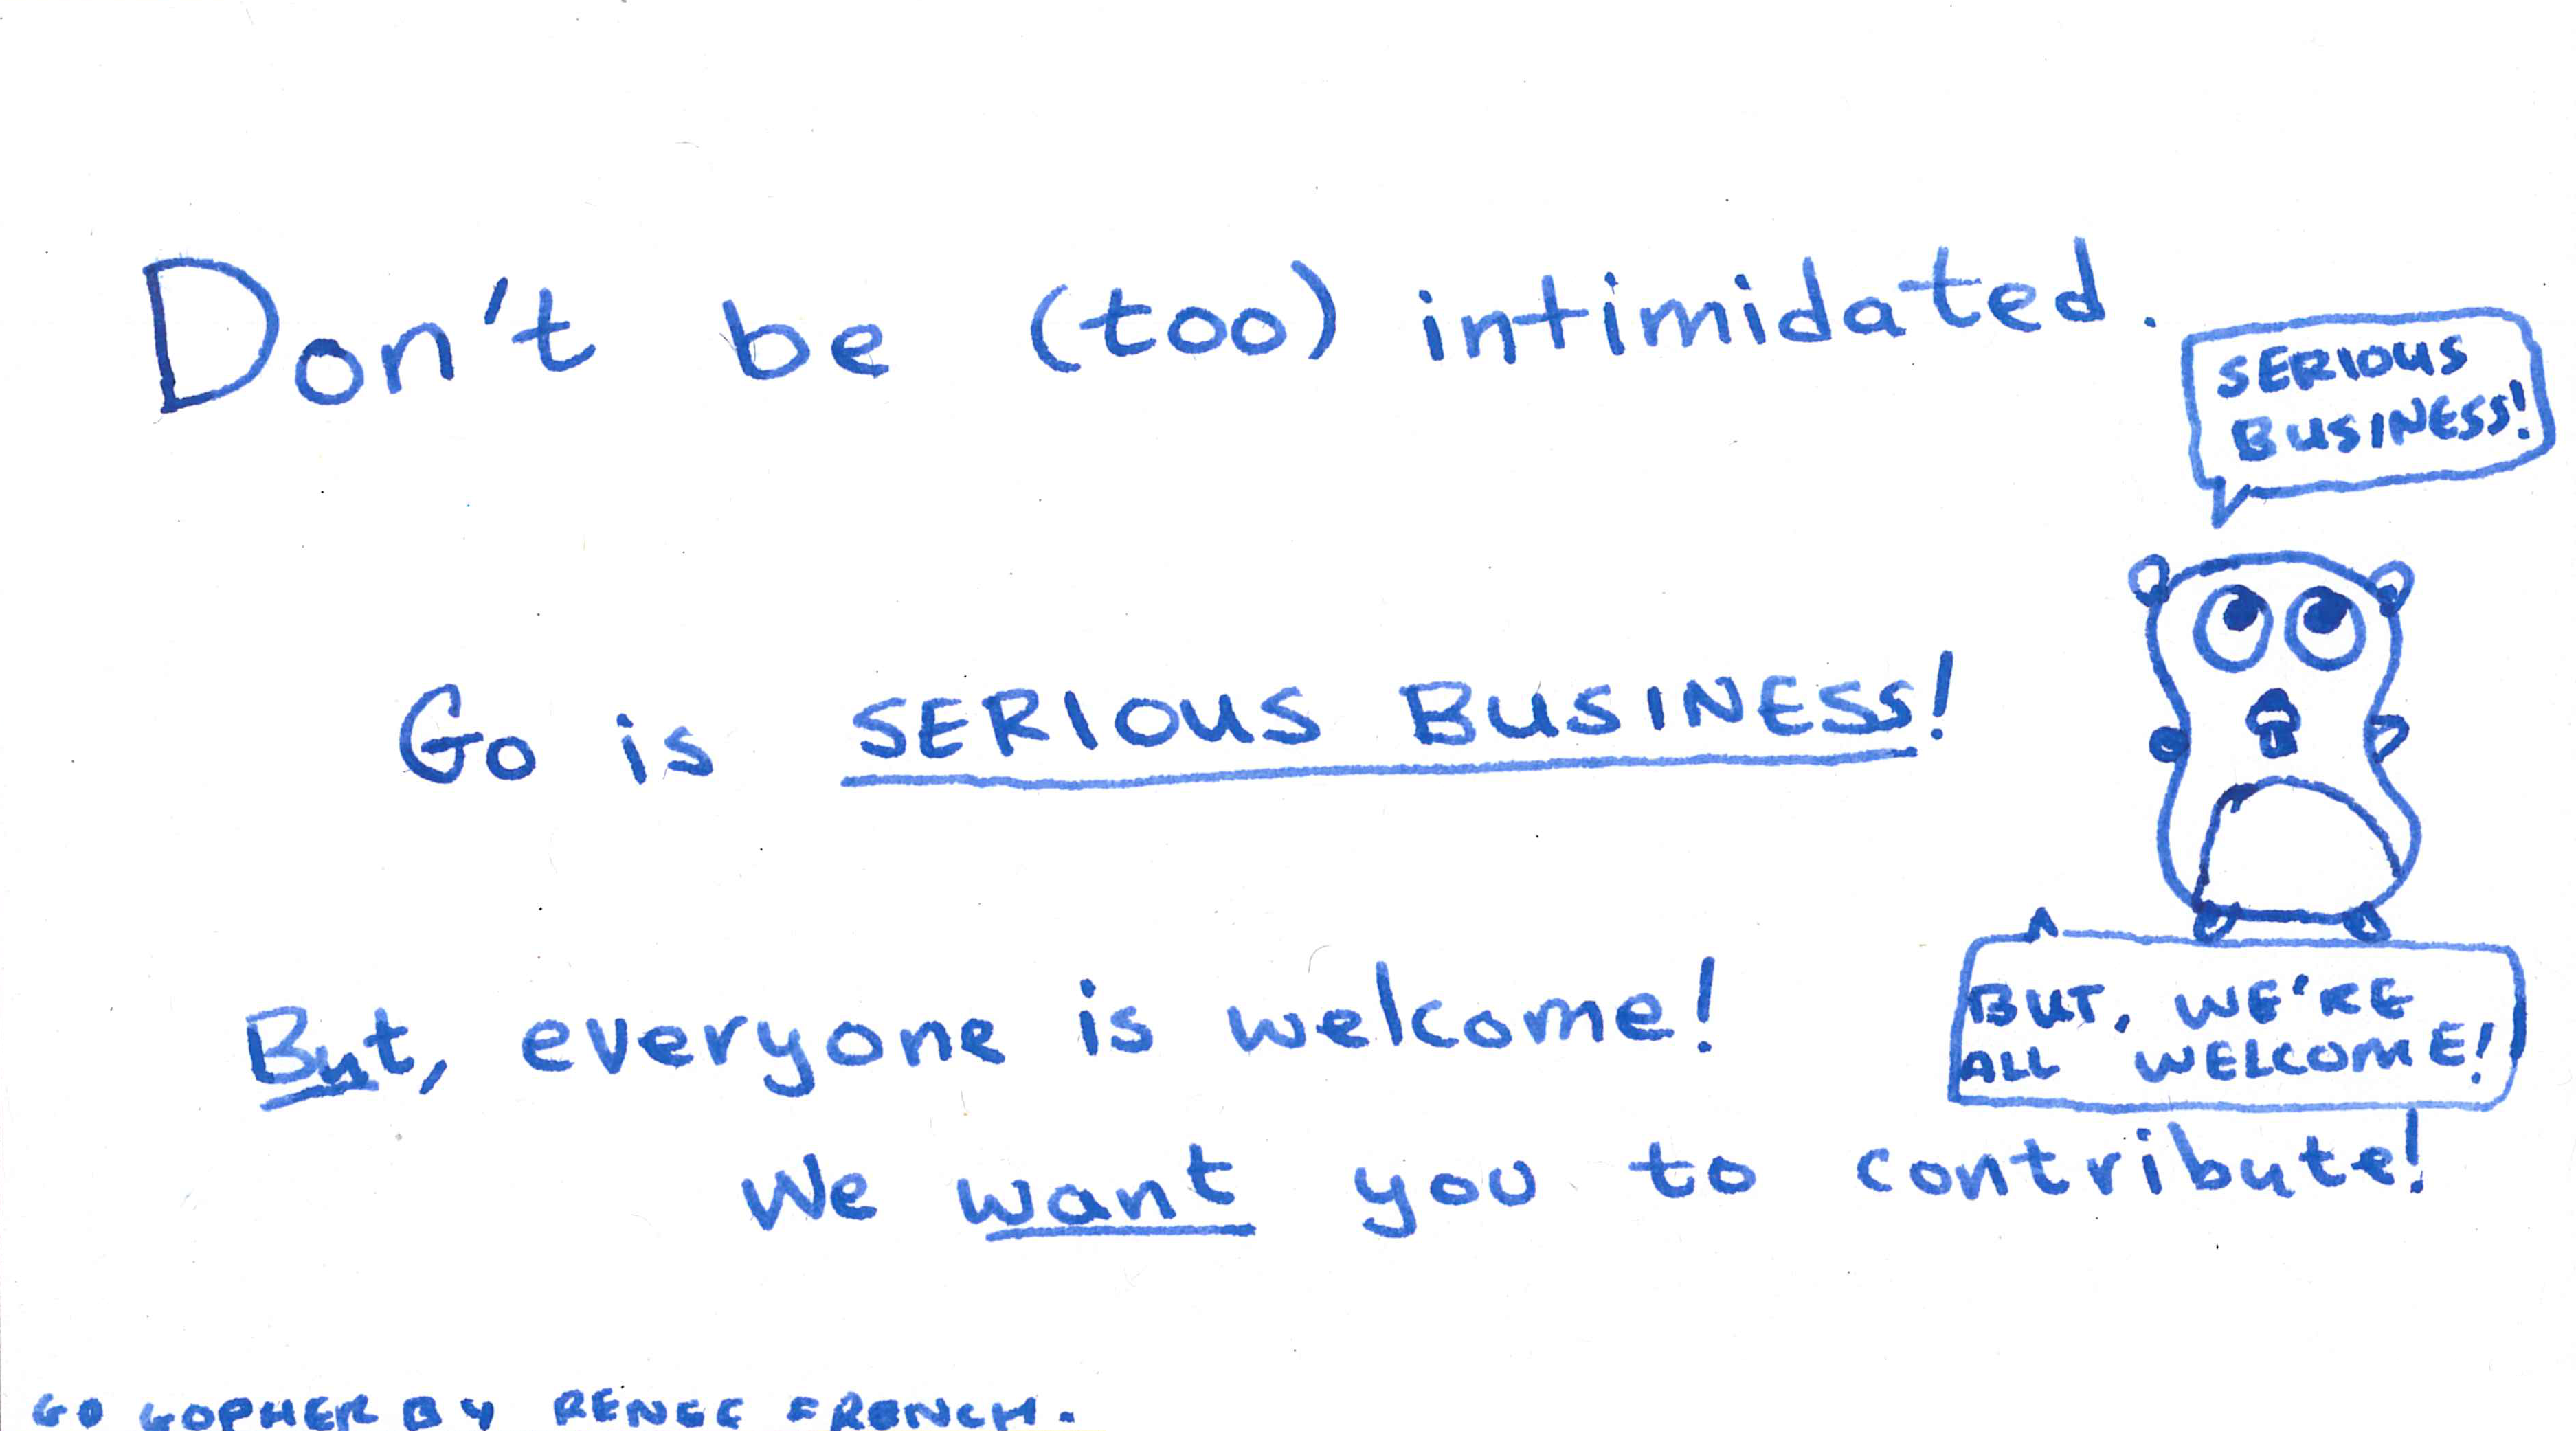 Don't be (too) intimidated.
SERIOUS
BUSINESS!
Go is SERIOUS BUSINESS!
But, everyone is welcome!
BUT, WE'RE
ALL WELCOME!
We want you to contribute!
GO GOPHER BY RENEE FRENCH.